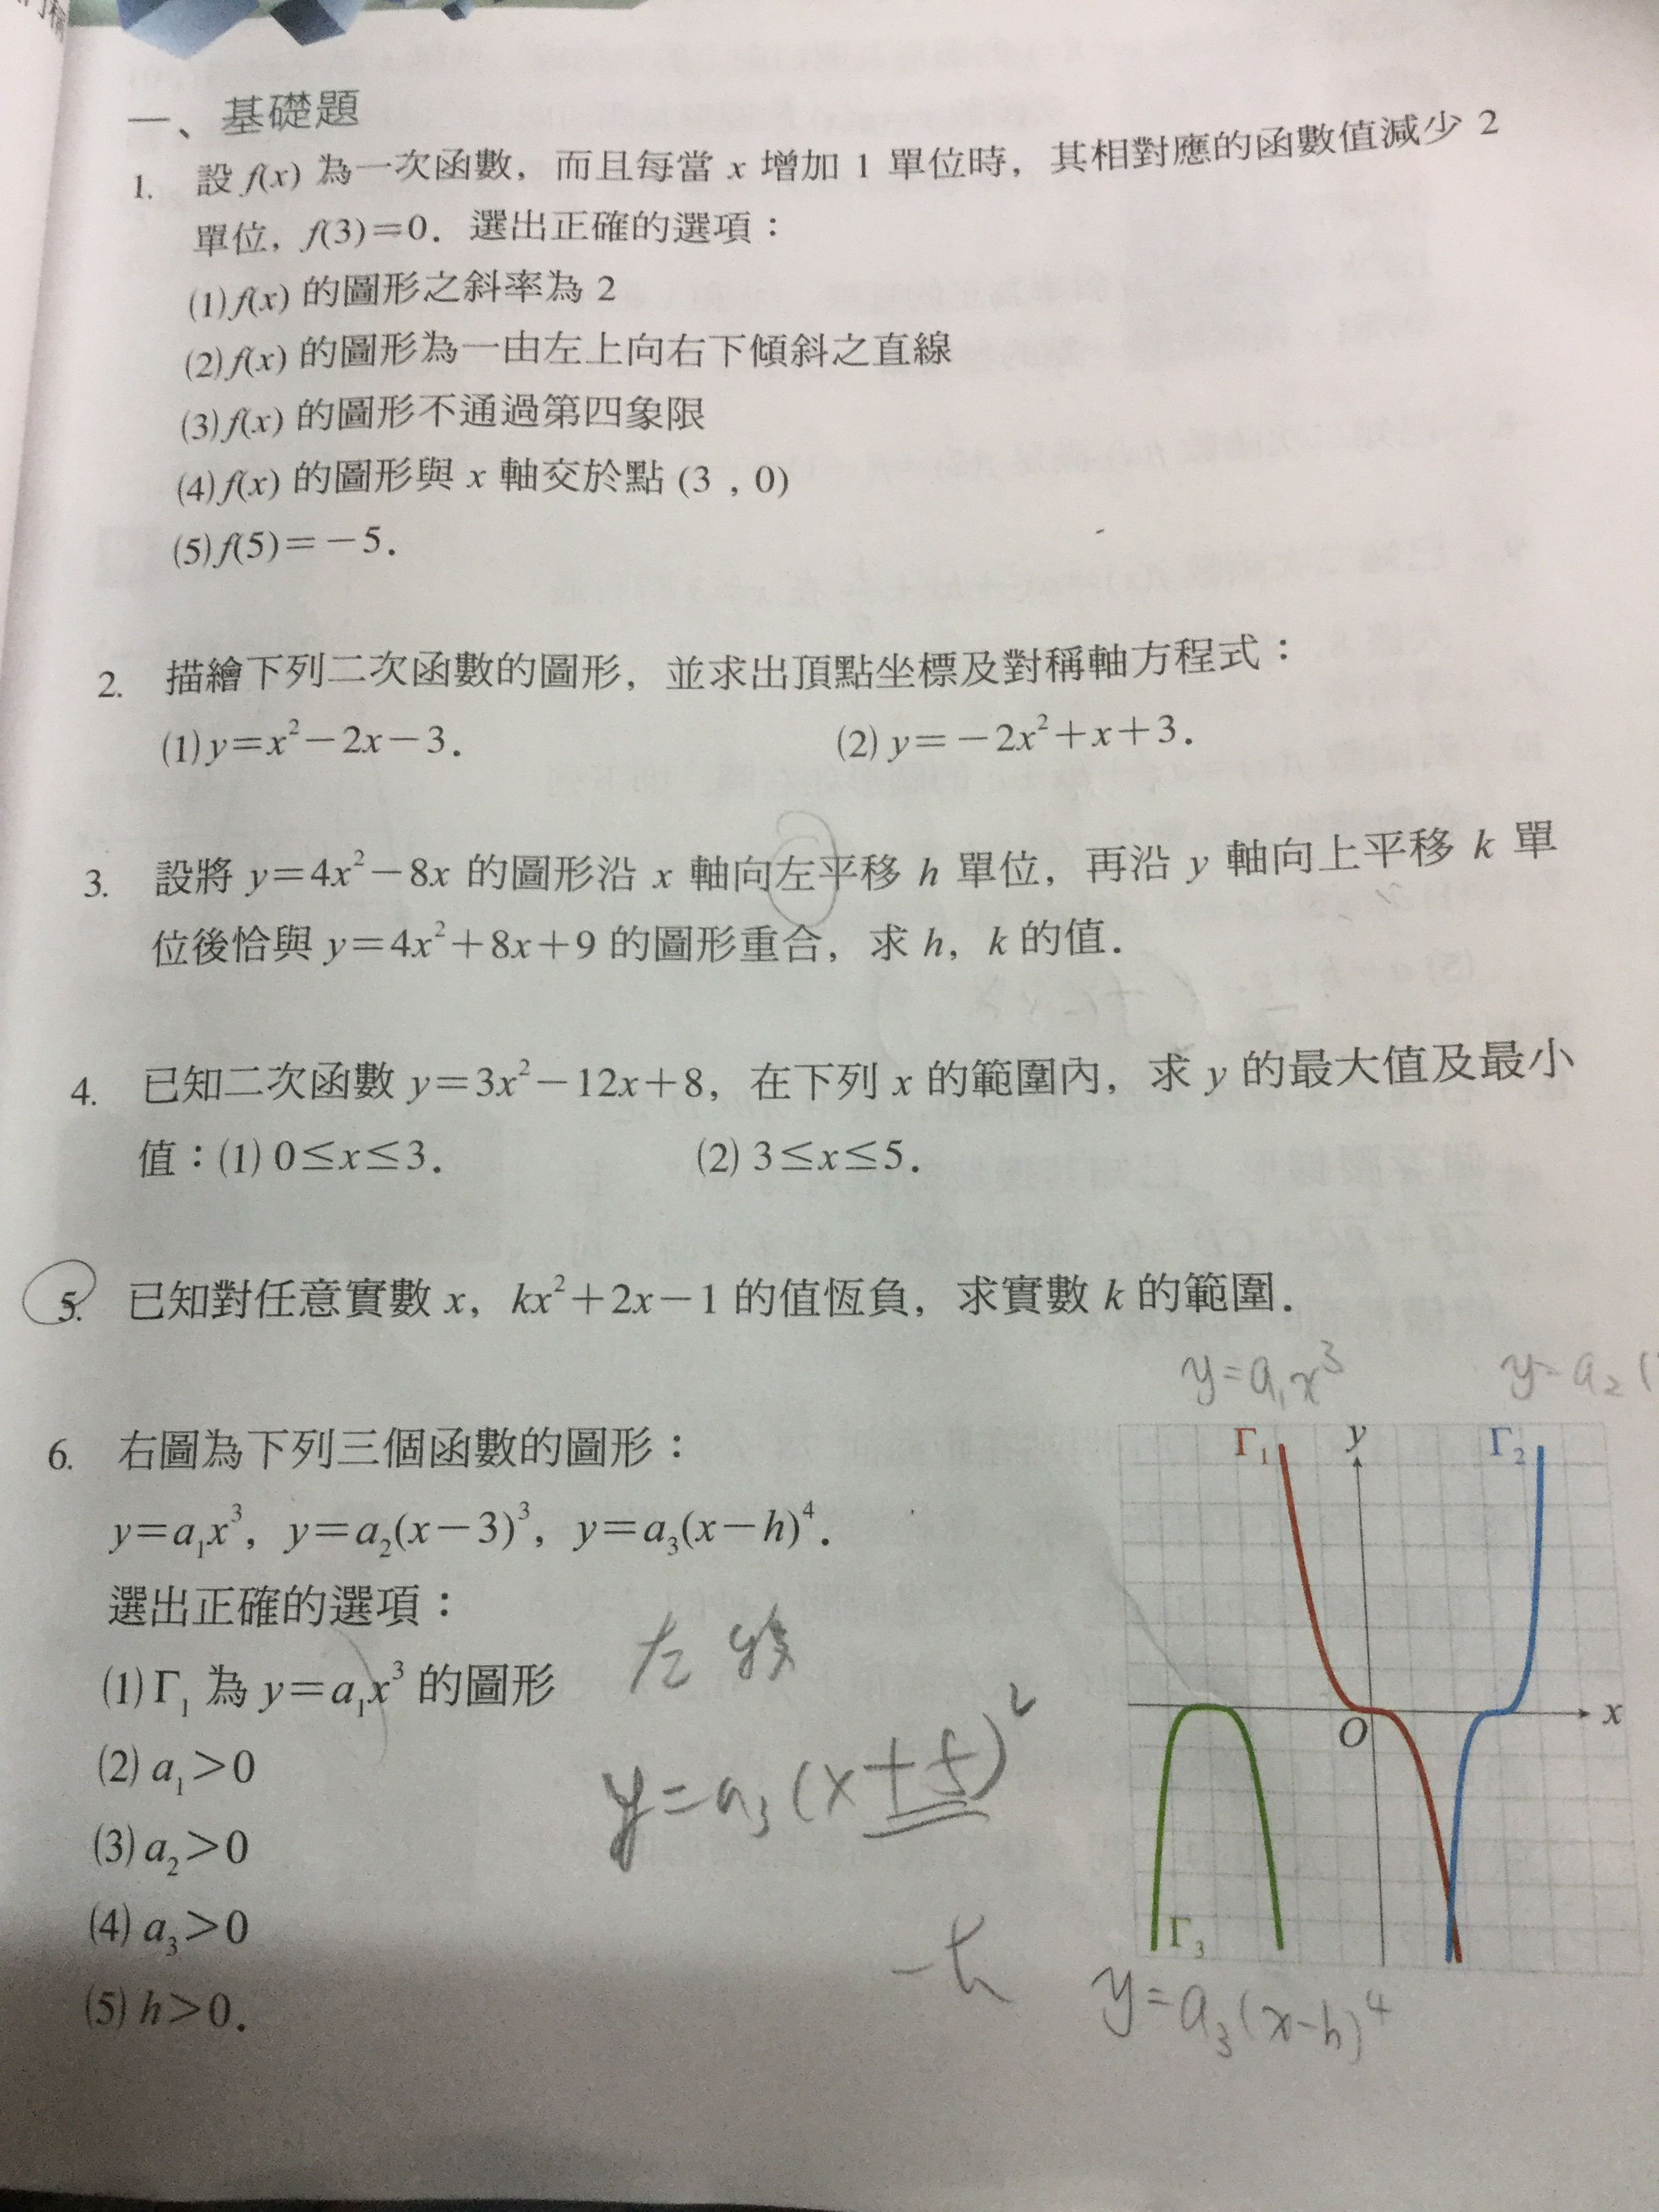 一、基礎題
1. 設 f(x) 為一次函數，而且每當 x 增加 1 單位時，其相對應的函數值減少 2
單位，f(3)=0．選出正確的選項：
(1) f(x) 的圖形之斜率為 2
(2) f(x) 的圖形為一由左上向右下傾斜之直線
(3) f(x) 的圖形不通過第四象限
(4) f(x) 的圖形與 x 軸交於點 (3 , 0)
(5) f(5)=－5．
2. 描繪下列二次函數的圖形，並求出頂點坐標及對稱軸方程式：
(1) y=x²－2x－3． (2) y=－2x²+x+3．
3. 設將 y=4x²－8x 的圖形沿 x 軸向左平移 h 單位，再沿 y 軸向上平移 k 單
位後恰與 y=4x²+8x+9 的圖形重合，求 h，k 的值．
4. 已知二次函數 y=3x²－12x+8，在下列 x 的範圍內，求 y 的最大值及最小
值：(1) 0≤x≤3． (2) 3≤x≤5．
5. 已知對任意實數 x，kx²+2x－1 的值恆負，求實數 k 的範圍．
y=a₁x³ y=a₂(
6. 右圖為下列三個函數的圖形：
y=a₁x³，y=a₂(x－3)³，y=a₃(x－h)⁴．
選出正確的選項：
(1) Γ₁ 為 y=a₁x³ 的圖形
(2) a₁>0
(3) a₂>0
(4) a₃>0
(5) h>0．
Γ₁ y Γ₂
O x
Γ₃
左
y=a₃(x+5)²
y=a₃(x-h)⁴